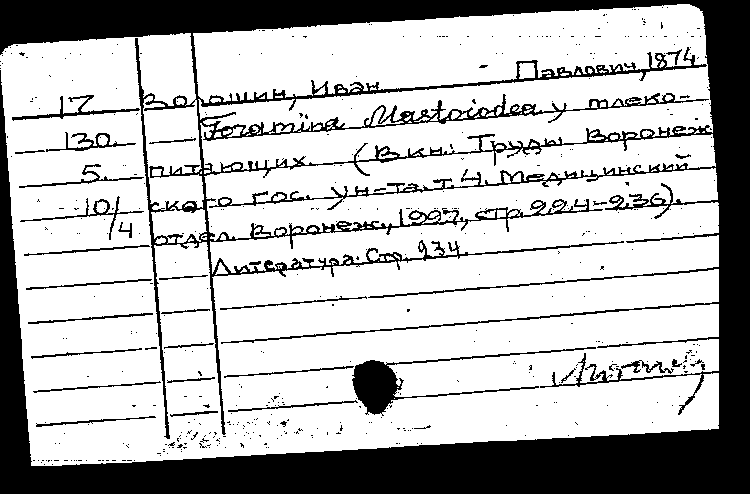 17 Волошин, Иван Павлович, 1874
130. Foramina Mastoidea у млеко-
5. питающих. (В кн.: Труды Воронеж
10/4 ского гос. ун-та. т. 4. Медицинский
отдел. Воронеж, 1927, стр. 224-236).
Литература: Стр. 234.